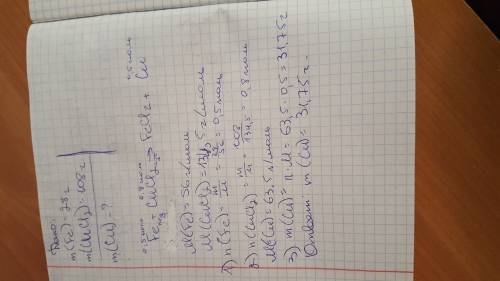 Дано:
m(Fe) = 28 г
m(CuCl₂) = 108 г
m(Cu) - ?
0,5 моль 0,8 моль 0,5 моль
Fe + CuCl₂ → FeCl₂ + Cu
M(Fe) = 56 г/моль
M(CuCl₂) = 134,5 г/моль
1) n(Fe) = m/M = 28/56 = 0,5 моль
2) n(CuCl₂) = m/M = 108/134,5 = 0,8 моль
M(Cu) = 63,5 г/моль
3) m(Cu) = n·M = 63,5·0,5 = 31,75 г
Ответ: m(Cu) = 31,75 г.